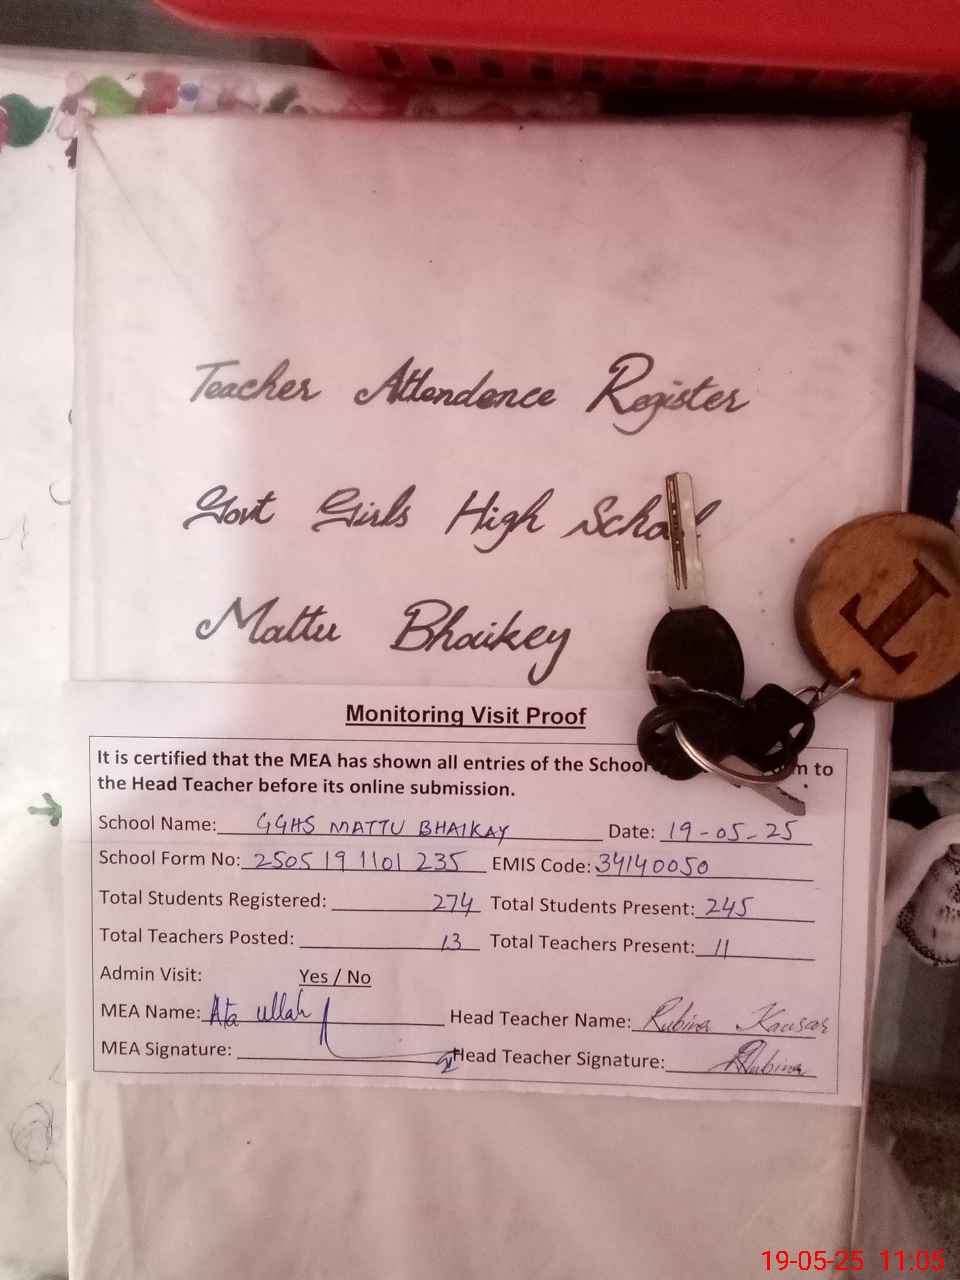 Teacher Attendence Register
Govt Girls High School
Mattu Bhaikey
Monitoring Visit Proof
It is certified that the MEA has shown all entries of the School m to
the Head Teacher before its online submission.
School Name: GGHS MATTU BHAIKAY Date: 19-05-25
School Form No: 2505 19 1101 235 EMIS Code: 34140050
Total Students Registered: 274 Total Students Present: 245
Total Teachers Posted: 13 Total Teachers Present: 11
Admin Visit: Yes / No
MEA Name: Ata ullah Head Teacher Name: Rubina Kausar
MEA Signature: Head Teacher Signature: Rubina
T
19-05-25 11:05